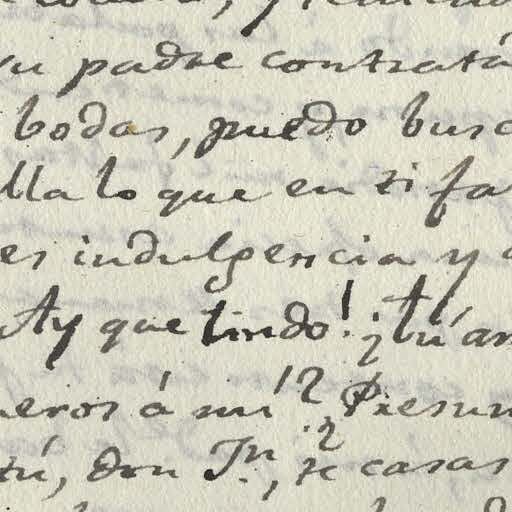 su padre contratá
bodas, puedo busc
lla lo que en ti fa
es indulgencia y
Ay que lindo! ¿tú am
neros á mí? Presun
tú, don Jn., te casas